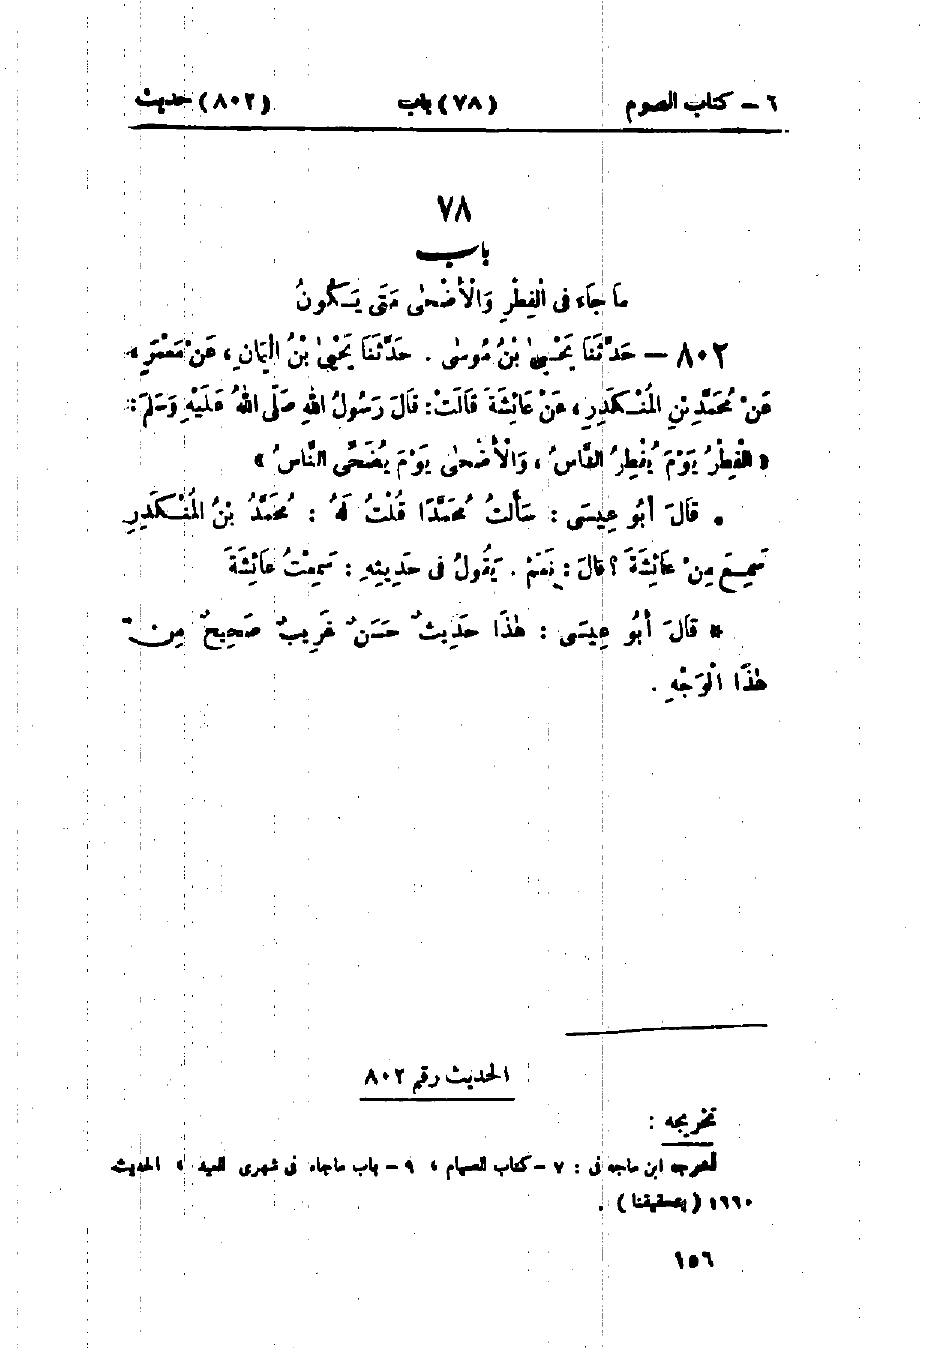 ٦ – كتاب الصوم (٧٨) باب (٨٠٢) حديث
٧٨
باب
مَا جَاءَ فِى الْفِطْرِ وَالْأَضْحٰى مَتَى يَكُونُ
٨٠٢ – حَدَّثَنَا يَحْيىٰ بْنُ مُوسٰى . حَدَّثَنَا يَحْيىٰ بْنُ الْيَمَانِ ، عَنْ مَعْمَرٍ ،
عَنْ مُحَمَّدِ بْنِ الْمُنْكَدِرِ ، عَنْ عَائِشَةَ قَالَتْ: قَالَ رَسُولُ اللهِ صَلَّى اللهُ عَلَيْهِ وَسَلَّمَ:
« الْفِطْرُ يَوْمَ يُفْطِرُ النَّاسُ ، وَالْأَضْحٰى يَوْمَ يُضَحِّى النَّاسُ »
• قَالَ أَبُو عِيسَى : سَأَلْتُ مُحَمَّدًا قُلْتُ لَهُ : مُحَمَّدُ بْنُ الْمُنْكَدِرِ
سَمِعَ مِنْ عَائِشَةَ ؟ قَالَ : نَعَمْ . يَقُولُ فِى حَدِيثِهِ : سَمِعْتُ عَائِشَةَ
* قَالَ أَبُو عِيسَى : هٰذَا حَدِيثٌ حَسَنٌ غَرِيبٌ صَحِيحٌ مِنْ
هٰذَا الْوَجْهِ .
الحديث رقم ٨٠٢
تخريجه :
أخرجه ابن ماجه فى : ٧ – كتاب الصيام ، ٩ – باب ماجاء فى شهرى العيد ، الحديث
١٦٦٠ ( بتحقيقنا ) .
١٥٦